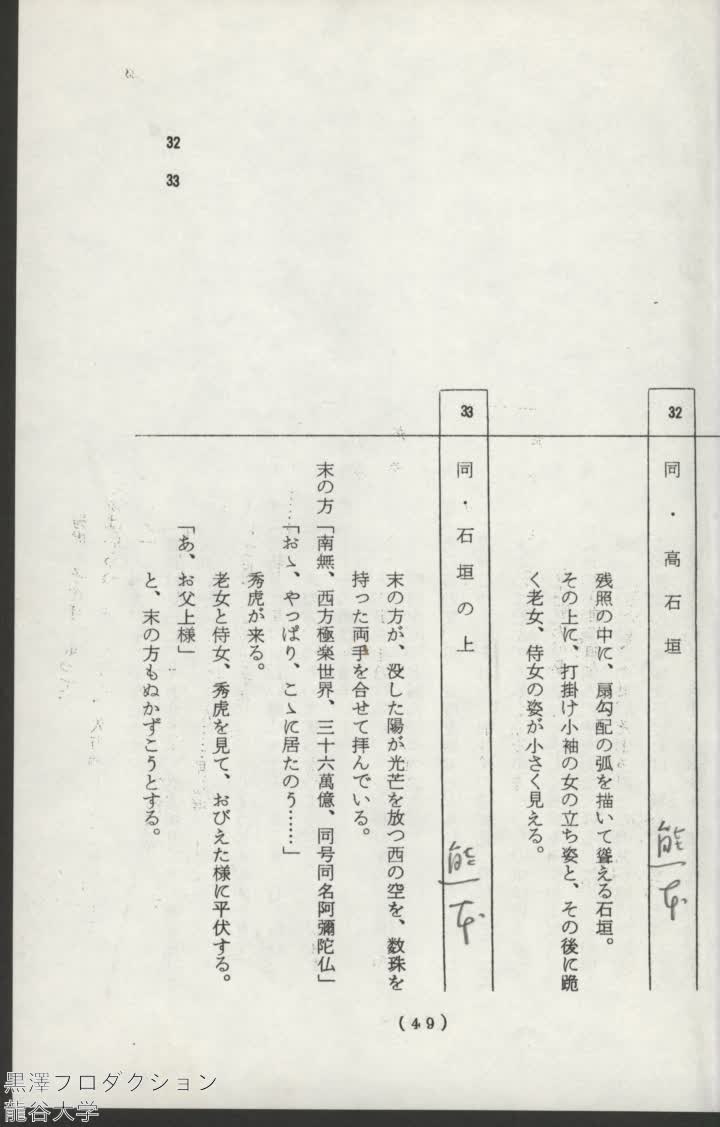 32
33
32 同・高石垣 熊本
残照の中に、扇勾配の弧を描いて聳える石垣。
その上に、打掛け小袖の女の立ち姿と、その後に跪
く老女、侍女の姿が小さく見える。
33 同・石垣の上 熊本
末の方が、没した陽が光芒を放つ西の空を、数珠を
持った両手を合せて拝んでいる。
末の方「南無、西方極楽世界、三十六萬億、同号同名阿彌陀仏」
「おゝ、やっぱり、こゝに居たのう……」
秀虎が来る。
老女と侍女、秀虎を見て、おびえた様に平伏する。
「あ、お父上様」
と、末の方もぬかずこうとする。
(49)
黒澤フロダクション
龍谷大学